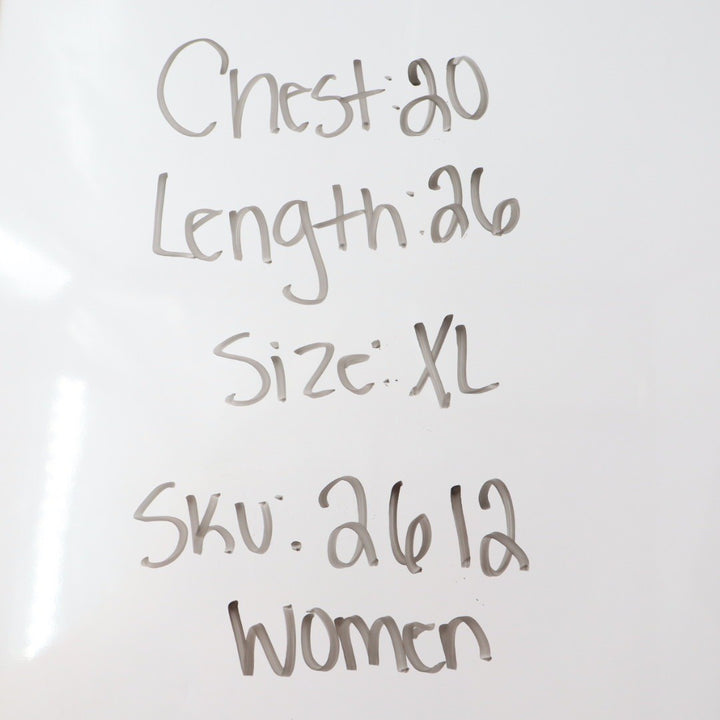 Chest: 20
Length: 26
Size: XL
SKU: 2612
Women